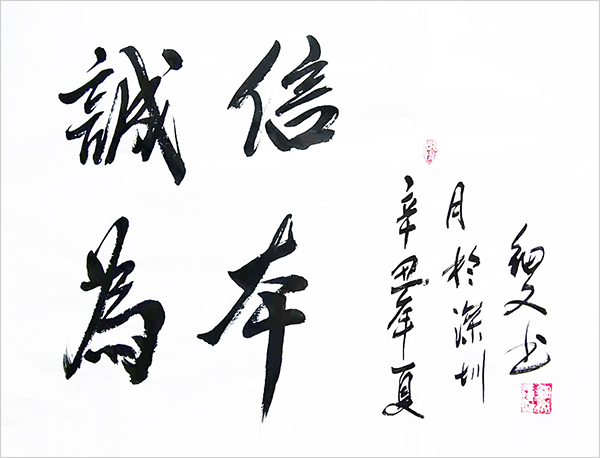 誠信
為本
辛丑年夏
月於深圳
細文书